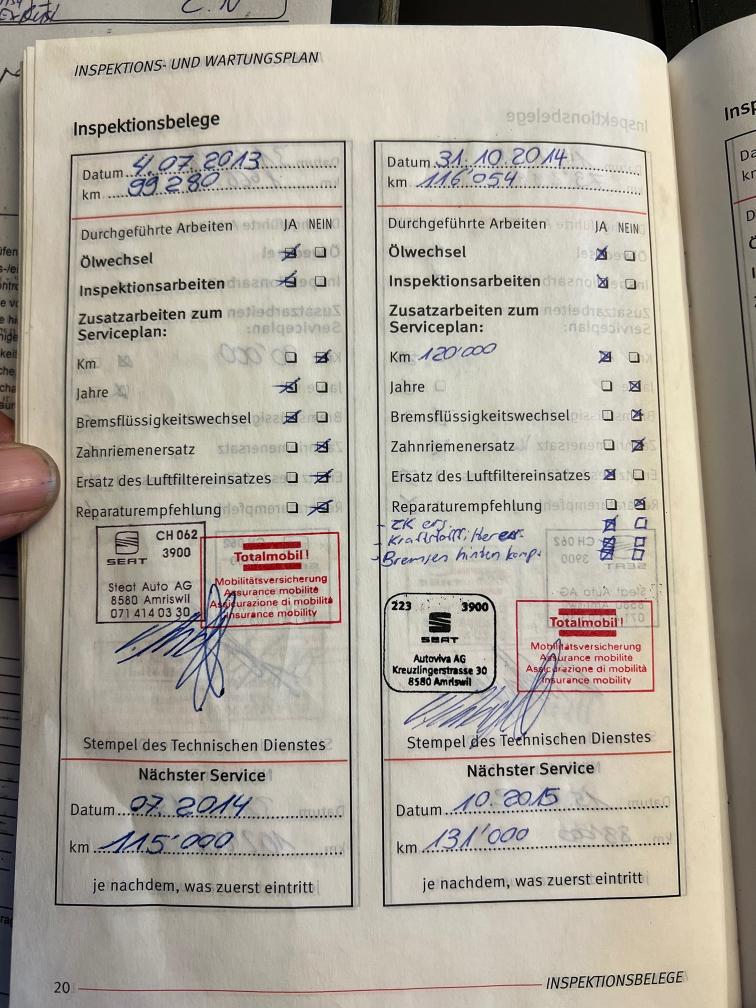 INSPEKTIONS- UND WARTUNGSPLAN
Inspektionsbelege
Datum 4.07.2013
km 99280
Durchgeführte Arbeiten JA NEIN
Ölwechsel
Inspektionsarbeiten
Zusatzarbeiten zum
Serviceplan:
Km
Jahre
Bremsflüssigkeitswechsel
Zahnriemenersatz
Ersatz des Luftfiltereinsatzes
Reparaturempfehlung
SEAT
CH 062
3900
Steat Auto AG
8580 Amriswil
071 414 03 30
Totalmobil!
Mobilitätsversicherung
Assurance mobilité
Assicurazione di mobilità
Insurance mobility
Stempel des Technischen Dienstes
Nächster Service
Datum 07.2014
km 115'000
je nachdem, was zuerst eintritt
Datum 31.10.2014
km 116'054
Durchgeführte Arbeiten JA NEIN
Ölwechsel
Inspektionsarbeiten
Zusatzarbeiten zum
Serviceplan:
Km 120'000
Jahre
Bremsflüssigkeitswechsel
Zahnriemenersatz
Ersatz des Luftfiltereinsatzes
Reparaturempfehlung
- ZK ers.
- Bremsen hinten komp.
223 3900
SEAT
Autoviva AG
Kreuzlingerstrasse 30
8580 Amriswil
Totalmobil!
Mobilitätsversicherung
Assurance mobilité
Assicurazione di mobilità
Insurance mobility
Stempel des Technischen Dienstes
Nächster Service
Datum 10.2015
km 131'000
je nachdem, was zuerst eintritt
20
INSPEKTIONSBELEGE